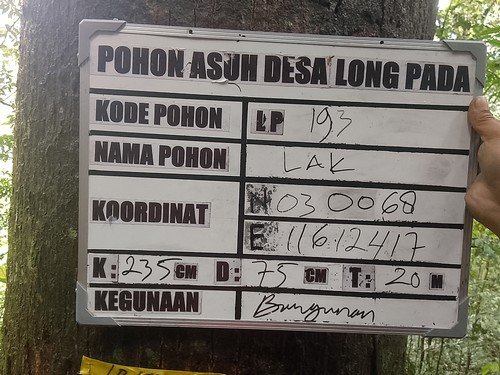 POHON ASUH DESA LONG PADA
KODE POHON LP 193
NAMA POHON LAK
KOORDINAT N 03 0068
E 11612417
K: 235 CM D: 75 CM T: 20 M
KEGUNAAN Bangunan